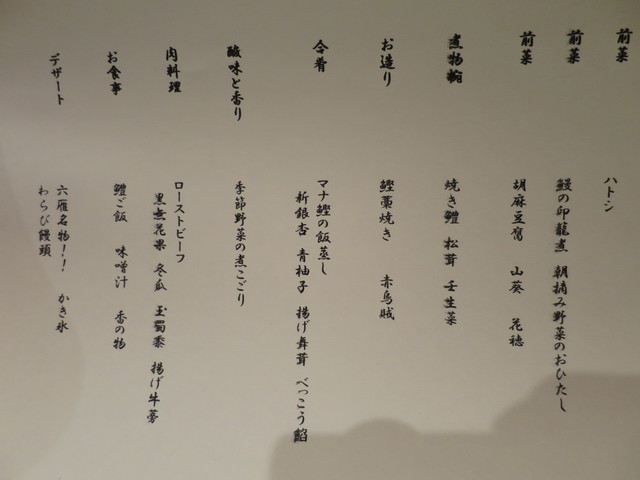 前菜　ハトシ
前菜　鰻の印籠煮　朝摘み野菜のおひたし
前菜　胡麻豆腐　山葵　花穂
煮物椀　焼き鱧　松茸　壬生菜
お造り　鰹藁焼き　赤烏賊
合肴　マナ鰹の飯蒸し
新銀杏　青柚子　揚げ舞茸　べっこう餡
酸味と香り　季節野菜の煮こごり
肉料理　ローストビーフ
黒無花果　冬瓜　玉蜀黍　揚げ牛蒡
お食事　鱧ご飯　味噌汁　香の物
デザート　六雁名物！！　かき氷
わらび饅頭